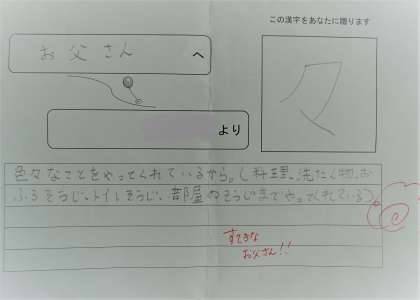 この漢字をあなたに贈ります
お父さん
へ
より
々
色々なことをやってくれているから。(料理、洗たく物、お
ふろそうじ、トイレそうじ、部屋のそうじまでやってくれている)
すてきな
お父さん!!